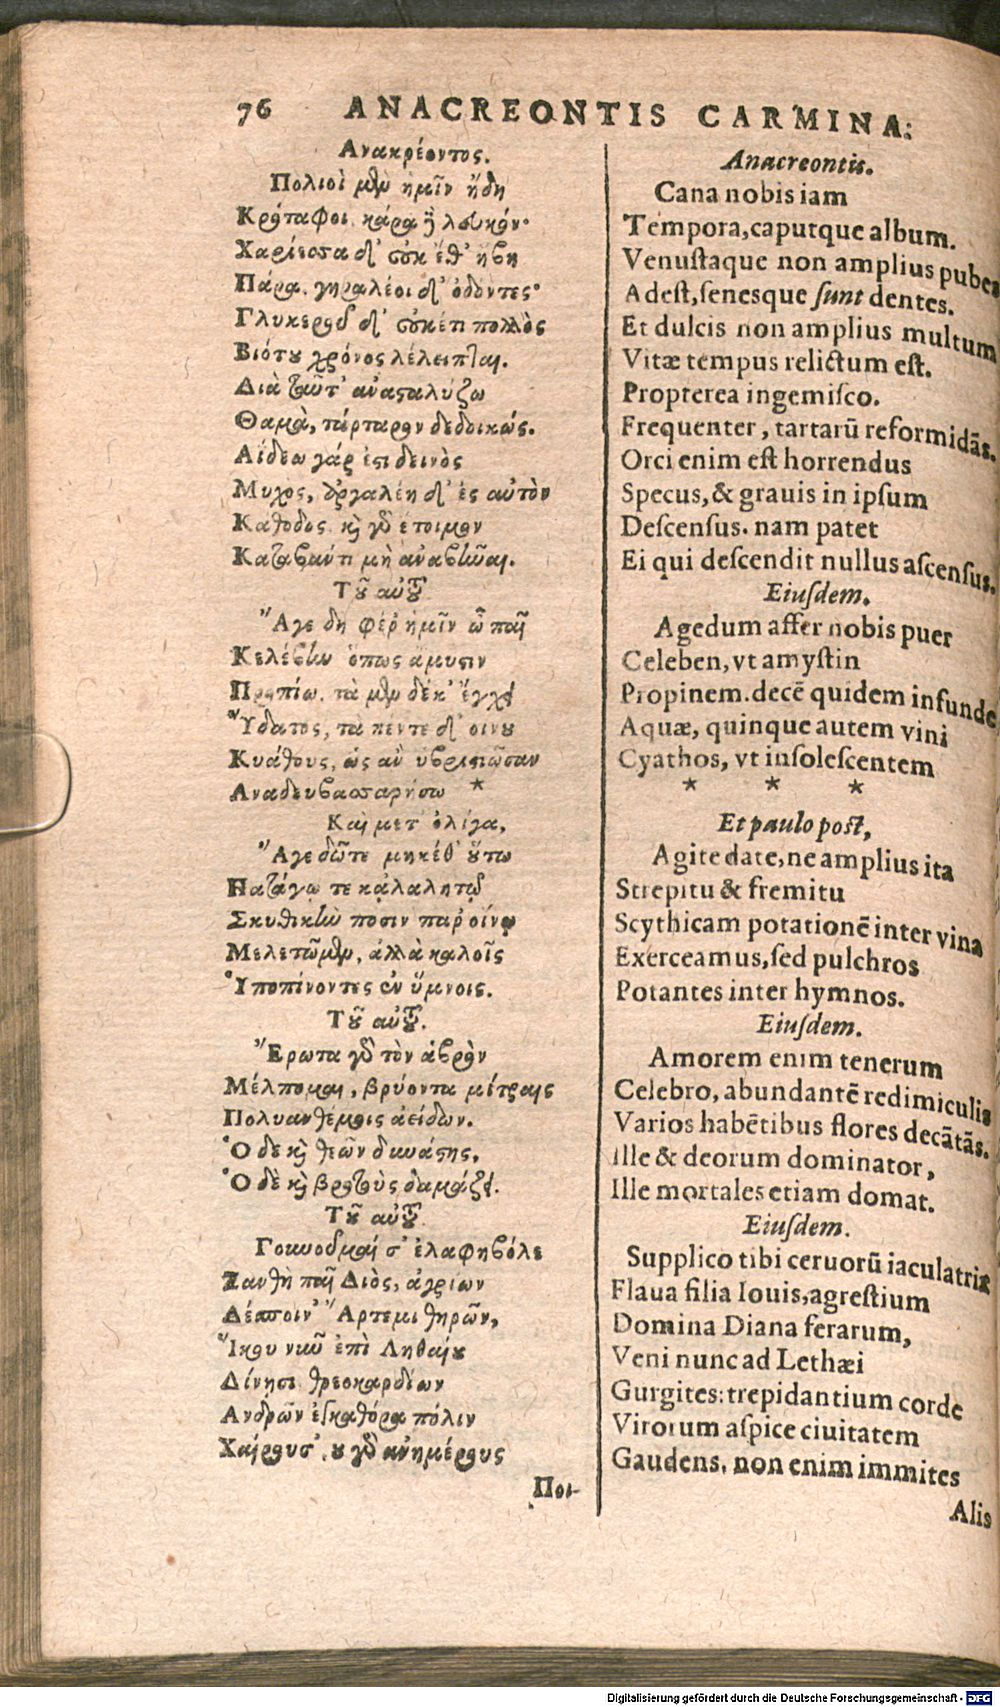 76 ANACREONTIS CARMINA:
Ανακρέοντος.
Πολιοὶ μὲν ἡμῖν ἤδη
Κρόταφοι, κάρα τε λευκόν·
Χαρίεσσα δ' οὐκ ἔθ' ἥβη
Πάρα, γηραλέοι δ' ὀδόντες·
Γλυκεροῦ δ' οὐκέτι πολλὸς
Βιότου χρόνος λέλειπται.
Διὰ ταῦτ' ἀνασταλύζω
Θαμὰ, τάρταρον δεδοικώς.
Αΐδεω γάρ ἐστι δεινὸς
Μυχος, ἀργαλέη δ' ἐς αὐτὸν
Κάθοδος. καὶ γὰρ ἑτοιμον
Καταβάντι μὴ ἀναβῆναι.
Τοῦ αὐτοῦ
Ἄγε δη φέρ ἡμῖν ὦ παῖ
Κελέβην ὁπως ἀμυστιν
Προπίω. τὰ μὲν δέκ' ἔγχει
Ὕδατος, τὰ πεντε δ' οἰνου
Κυάθους, ὡς ἀν ὑβριστιῶσαν
Αναδευβασσαρήσω *
Καὶ μετ' ὀλίγα,
Ἄγε δῶτε μηκέθ' οὕτω
Παταγῳ τε κᾀλαλητῷ
Σκυθικὴν ποσιν παρ οἴνῳ
Μελετῶμεν, ἀλλὰ καλοῖς
Ὑποπίνοντες ἐν ὕμνοις.
Τοῦ αὐτοῦ.
Ἔρωτα γὰρ τὸν ἁβρὸν
Μέλπομαι, βρύοντα μίτραις
Πολυανθέμοις ἀείδων.
Ὁ δε καὶ θεῶν δυνάστης,
Ὁ δὲ καὶ βροτοὺς δαμάζει.
Τοῦ αὐτοῦ.
Γουνοῦμαί σ' ἐλαφηβόλε
Ξανθὴ παῖ Διὸς, ἀγρίων
Δέσποιν' Ἄρτεμι θηρῶν,
Ἵκου νῦν ἐπὶ Ληθαίου
Δίνησι θρεσκαρδίων
Ανδρῶν ἐσκαθόρα πόλιν
Χαίρουσ'. οὐ γὰρ ἀνημέρους
Ποι-
Anacreontis.
Cana nobis iam
Tempora, caputque album.
Venustaque non amplius pubes
Adest, senesque sunt dentes.
Et dulcis non amplius multum
Vitæ tempus relictum est.
Propterea ingemisco.
Frequenter, tartarū reformidās.
Orci enim est horrendus
Specus, & grauis in ipsum
Descensus. nam patet
Ei qui descendit nullus ascensus.
Eiusdem.
Agedum affer nobis puer
Celeben, vt amystin
Propinem. decē quidem infunde
Aquæ, quinque autem vini
Cyathos, vt insolescentem
* * *
Et paulo post,
Agite date, ne amplius ita
Strepitu & fremitu
Scythicam potationē inter vina
Exerceamus, sed pulchros
Potantes inter hymnos.
Eiusdem.
Amorem enim tenerum
Celebro, abundantē redimiculis
Varios habētibus flores decātās.
Ille & deorum dominator,
Ille mortales etiam domat.
Eiusdem.
Supplico tibi ceruorū iaculatrix
Flaua filia Iouis, agrestium
Domina Diana ferarum,
Veni nunc ad Lethæi
Gurgites: trepidantium corde
Virorum aspice ciuitatem
Gaudens. non enim immites
Alis
Digitalisierung gefördert durch die Deutsche Forschungsgemeinschaft - DFG